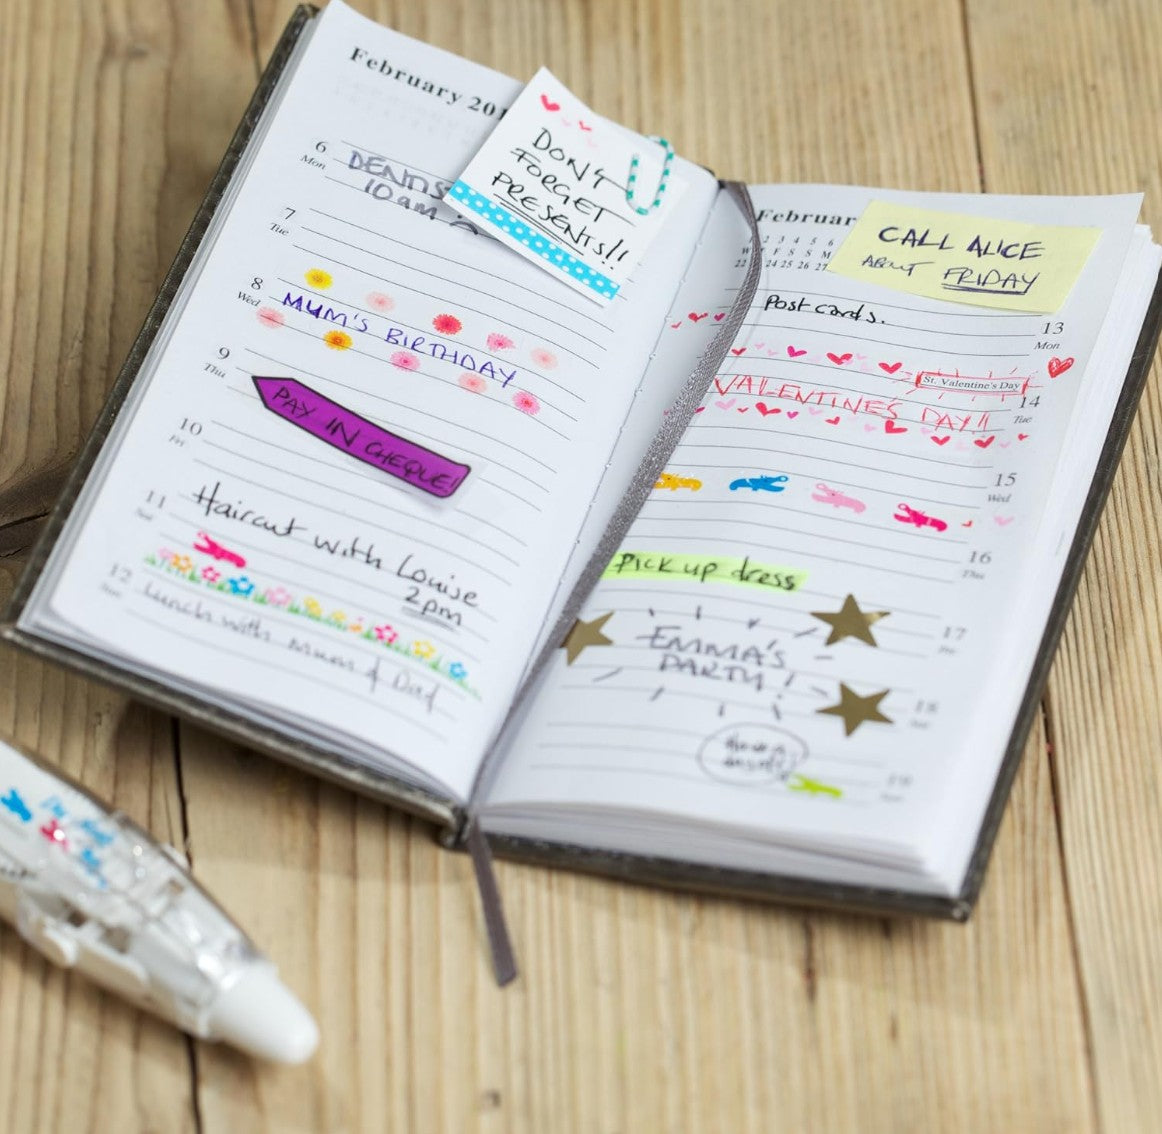 February 201
DON'T
FORGET
PRESENTS!!
6
Mon
DENTIS
10am
7
Tue
8
Wed
MUM'S BIRTHDAY
9
Thu
PAY IN CHEQUE!
10
Fri
11
Sat
Haircut with Louise
2pm
12
Sun
Lunch with mum & Dad
Februar
CALL ALICE
ABOUT FRIDAY
2 3 4 5 6
W T F S S M
22 24 25 26 27
Post cards.
13
Mon
St. Valentine's Day
VALENTINE'S DAY!!
14
Tue
15
Wed
16
Thu
Pick up dress
17
Fri
EMMA'S
PARTY!
18
Sat
19
Sun